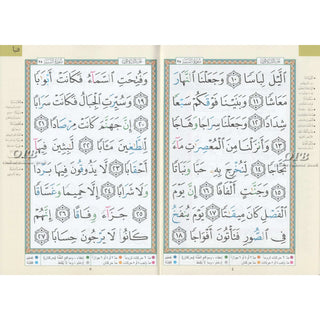 ٱلَّيْلَ لِبَاسًا ١٠ وَجَعَلْنَا ٱلنَّهَارَ
مَعَاشًا ١١ وَبَنَيْنَا فَوْقَكُمْ سَبْعًا
شِدَادًا ١٢ وَجَعَلْنَا سِرَاجًا وَهَّاجًا
١٣ وَأَنزَلْنَا مِنَ ٱلْمُعْصِرَٰتِ مَآءً
ثَجَّاجًا ١٤ لِّنُخْرِجَ بِهِۦ حَبًّا وَنَبَاتًا
١٥ وَجَنَّـٰتٍ أَلْفَافًا ١٦ إِنَّ يَوْمَ
ٱلْفَصْلِ كَانَ مِيقَـٰتًا ١٧ يَوْمَ يُنفَخُ
فِى ٱلصُّورِ فَتَأْتُونَ أَفْوَاجًا ١٨
وَفُتِحَتِ ٱلسَّمَآءُ فَكَانَتْ أَبْوَٰبًا
١٩ وَسُيِّرَتِ ٱلْجِبَالُ فَكَانَتْ سَرَابًا
٢٠ إِنَّ جَهَنَّمَ كَانَتْ مِرْصَادًا ٢١
لِّلطَّـٰغِينَ مَـَٔابًا ٢٢ لَّـٰبِثِينَ فِيهَآ
أَحْقَابًا ٢٣ لَّا يَذُوقُونَ فِيهَا بَرْدًا
وَلَا شَرَابًا ٢٤ إِلَّا حَمِيمًا وَغَسَّاقًا
٢٥ جَزَآءً وِفَاقًا ٢٦ إِنَّهُمْ
كَانُوا۟ لَا يَرْجُونَ حِسَابًا ٢٧